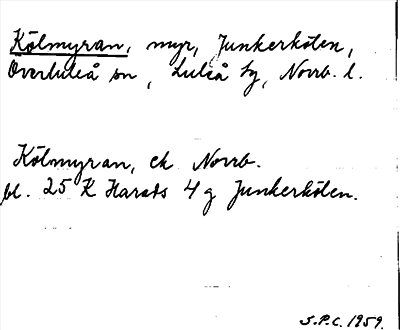 Kölmyran, myr, Junkerkölen,
Överluleå sn, Luleå tg, Norrb. l.
Kölmyran, ek Norrb.
bl. 25 K Harads 4 g Junkerkölen.
S.P.C. 1959.